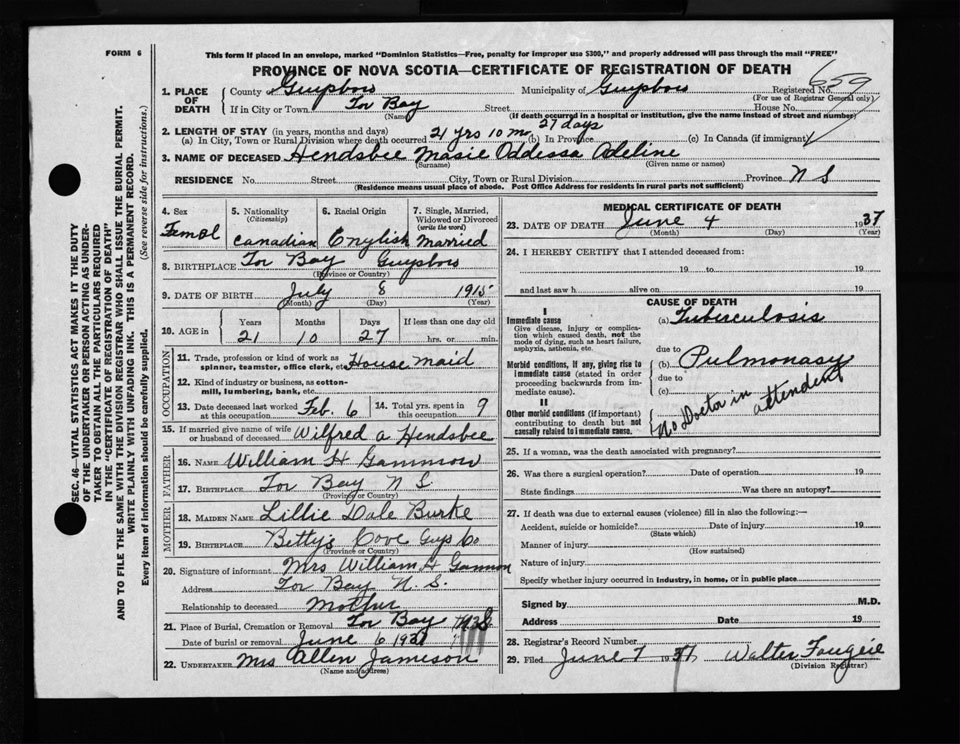 FORM 6
This form if placed in an envelope, marked "Dominion Statistics—Free, penalty for improper use $300," and properly addressed will pass through the mail "FREE"
PROVINCE OF NOVA SCOTIA—CERTIFICATE OF REGISTRATION OF DEATH
659
1. PLACE OF DEATH
County of Guysboro Municipality of Guysboro Registered No.
(For use of Registrar General only)
If in City or Town Tor Bay Street House No.
(Name) (If death occurred in a hospital or institution, give the name instead of street and number)
2. LENGTH OF STAY (in years, months and days)
(a) In City, Town or Rural Division where death occurred 21 yrs 10 mo 27 days (b) In Province (c) In Canada (if immigrant)
3. NAME OF DECEASED Hendsbee Masie Oddessa Adeline
(Surname) (Given name or names)
RESIDENCE No. Street City, Town or Rural Division Province N S
(Residence means usual place of abode. Post Office Address for residents in rural parts not sufficient)
4. Sex Femal
5. Nationality (Citizenship) Canadian
6. Racial Origin English
7. Single, Married, Widowed or Divorced (write the word) Married
8. BIRTHPLACE Tor Bay Guysboro
(Province or Country)
9. DATE OF BIRTH July 8 1915
(Month) (Day) (Year)
10. AGE in Years Months Days If less than one day old
21 10 27 hrs. or min.
OCCUPATION
11. Trade, profession or kind of work as spinner, teamster, office clerk, etc. House Maid
12. Kind of industry or business, as cotton-mill, lumbering, bank, etc.
13. Date deceased last worked at this occupation Feb. 6
14. Total yrs. spent in this occupation 9
15. If married give name of wife or husband of deceased Wilfred A Hendsbee
FATHER
16. NAME William H Gammon
17. BIRTHPLACE Tor Bay N S
(Province or Country)
MOTHER
18. MAIDEN NAME Lillie Dale Burke
19. BIRTHPLACE Betty's Cove Guys Co
(Province or Country)
20. Signature of informant Mrs William H Gammon
Address Tor Bay N. S.
Relationship to deceased Mother
21. Place of Burial, Cremation or Removal Tor Bay N S
Date of burial or removal June 6 1937
22. UNDERTAKER Mrs Allen Jamieson
(Name and address)
MEDICAL CERTIFICATE OF DEATH
23. DATE OF DEATH June 4 1937
(Month) (Day) (Year)
24. I HEREBY CERTIFY that I attended deceased from:
19 to 19
and last saw h alive on 19
CAUSE OF DEATH
I
Immediate cause
Give disease, injury or complication which caused death, not the mode of dying, such as heart failure, asphyxia, asthenia, etc.
(a) Tuberculosis
due to
Morbid conditions, if any, giving rise to immediate cause (stated in order proceeding backwards from immediate cause).
(b) Pulmonasy
due to
(c)
II
Other morbid conditions (if important) contributing to death but not causally related to immediate cause.
No Doctor in attendent
25. If a woman, was the death associated with pregnancy?
26. Was there a surgical operation? Date of operation 19
State findings Was there an autopsy?
27. If death was due to external causes (violence) fill in also the following:—
Accident, suicide or homicide? Date of injury 19
(State which)
Manner of injury
(How sustained)
Nature of injury
Specify whether injury occurred in industry, in home, or in public place
Signed by M.D.
Address Date 19
28. Registrar's Record Number
29. Filed June 7 1937 Walter Fougere
(Division Registrar)
SEC. 46—VITAL STATISTICS ACT MAKES IT THE DUTY
OF THE UNDERTAKER OR PERSON ACTING AS UNDER-
TAKER TO OBTAIN ALL THE PARTICULARS REQUIRED
IN THE "CERTIFICATE OF REGISTRATION OF DEATH"
AND TO FILE THE SAME WITH THE DIVISION REGISTRAR WHO SHALL ISSUE THE BURIAL PERMIT.
WRITE PLAINLY WITH UNFADING INK. THIS IS A PERMANENT RECORD.
Every item of information should be carefully supplied. (See reverse side for instructions.)